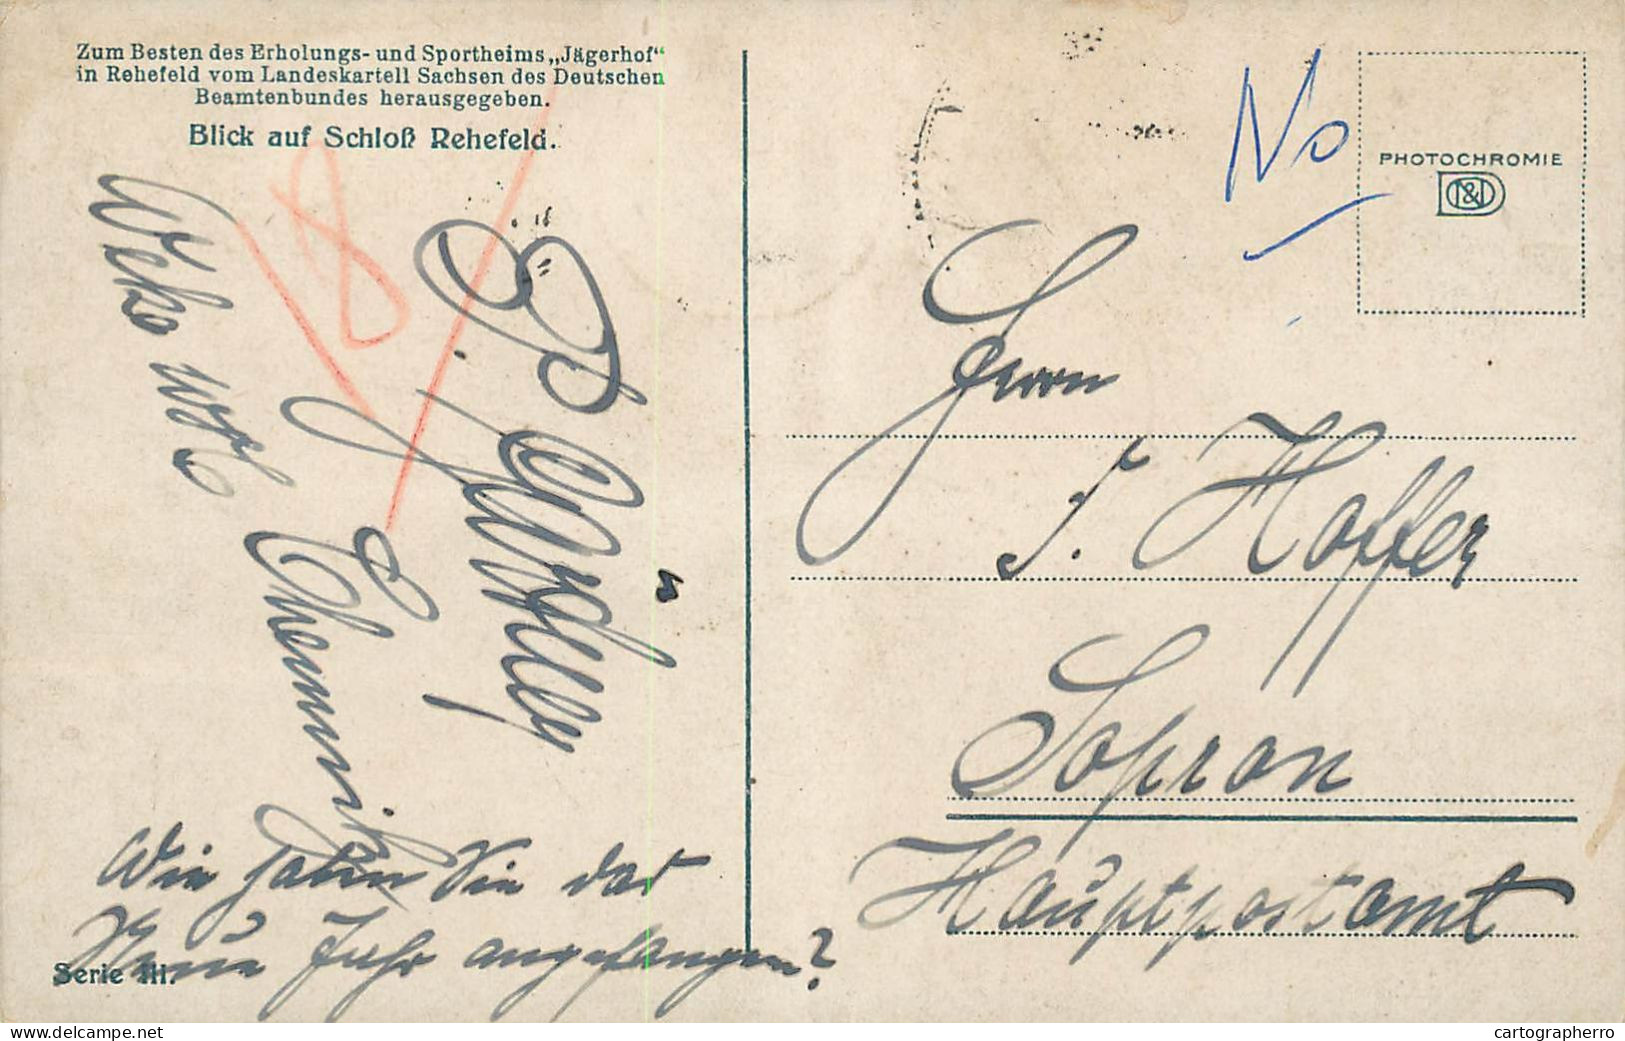 Zum Besten des Erholungs- und Sportheims „Jägerhof“
in Rehefeld vom Landeskartell Sachsen des Deutschen
Beamtenbundes herausgegeben.
Blick auf Schloß Rehefeld.
18
Chemnitz
Wie haben Sie das
Neue Jahr angefangen?
Serie III.
No
PHOTOCHROMIE
Herrn
J. Hoffer
Sopron
Hauptpostamt
delcampe.net
cartographerro